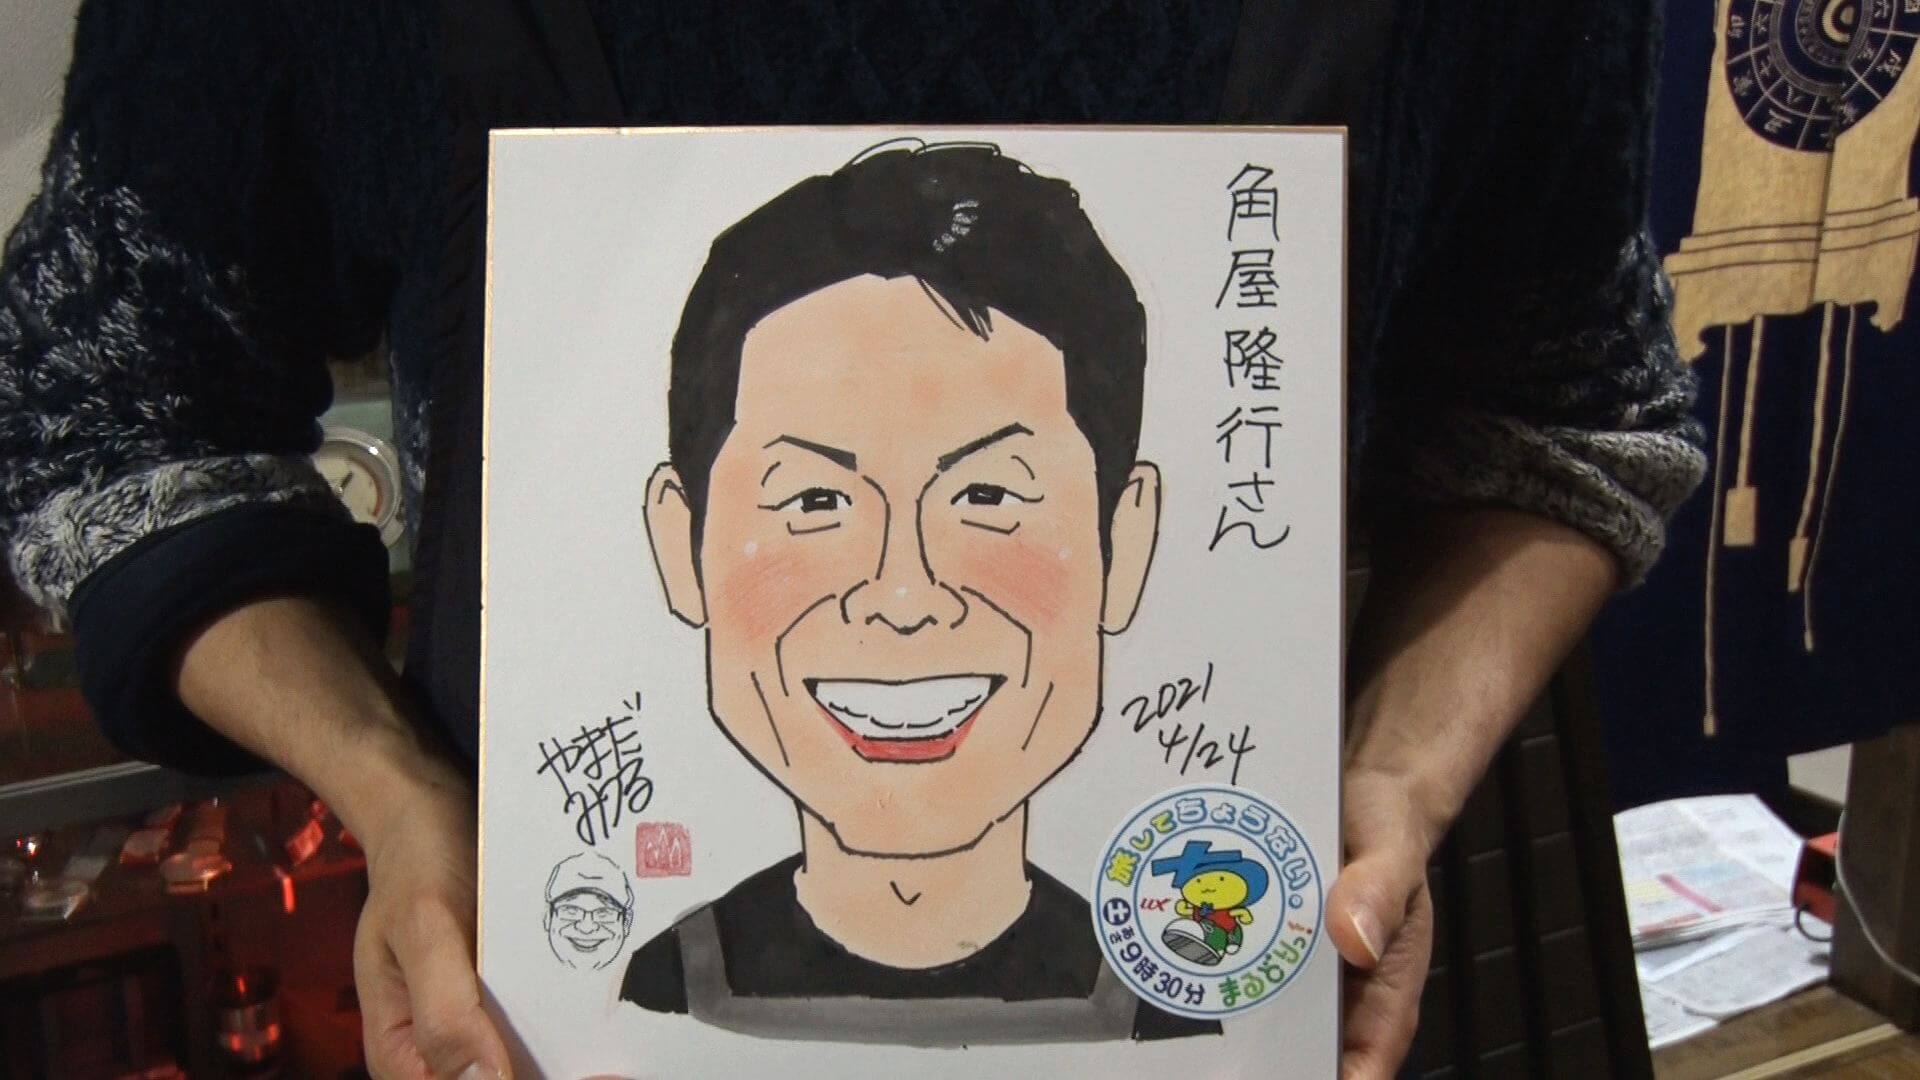 角屋隆行さん
2021
4/24
やまだ
みつる
旅してちょうない。
UX
土あさ9時30分
まるどりっ!